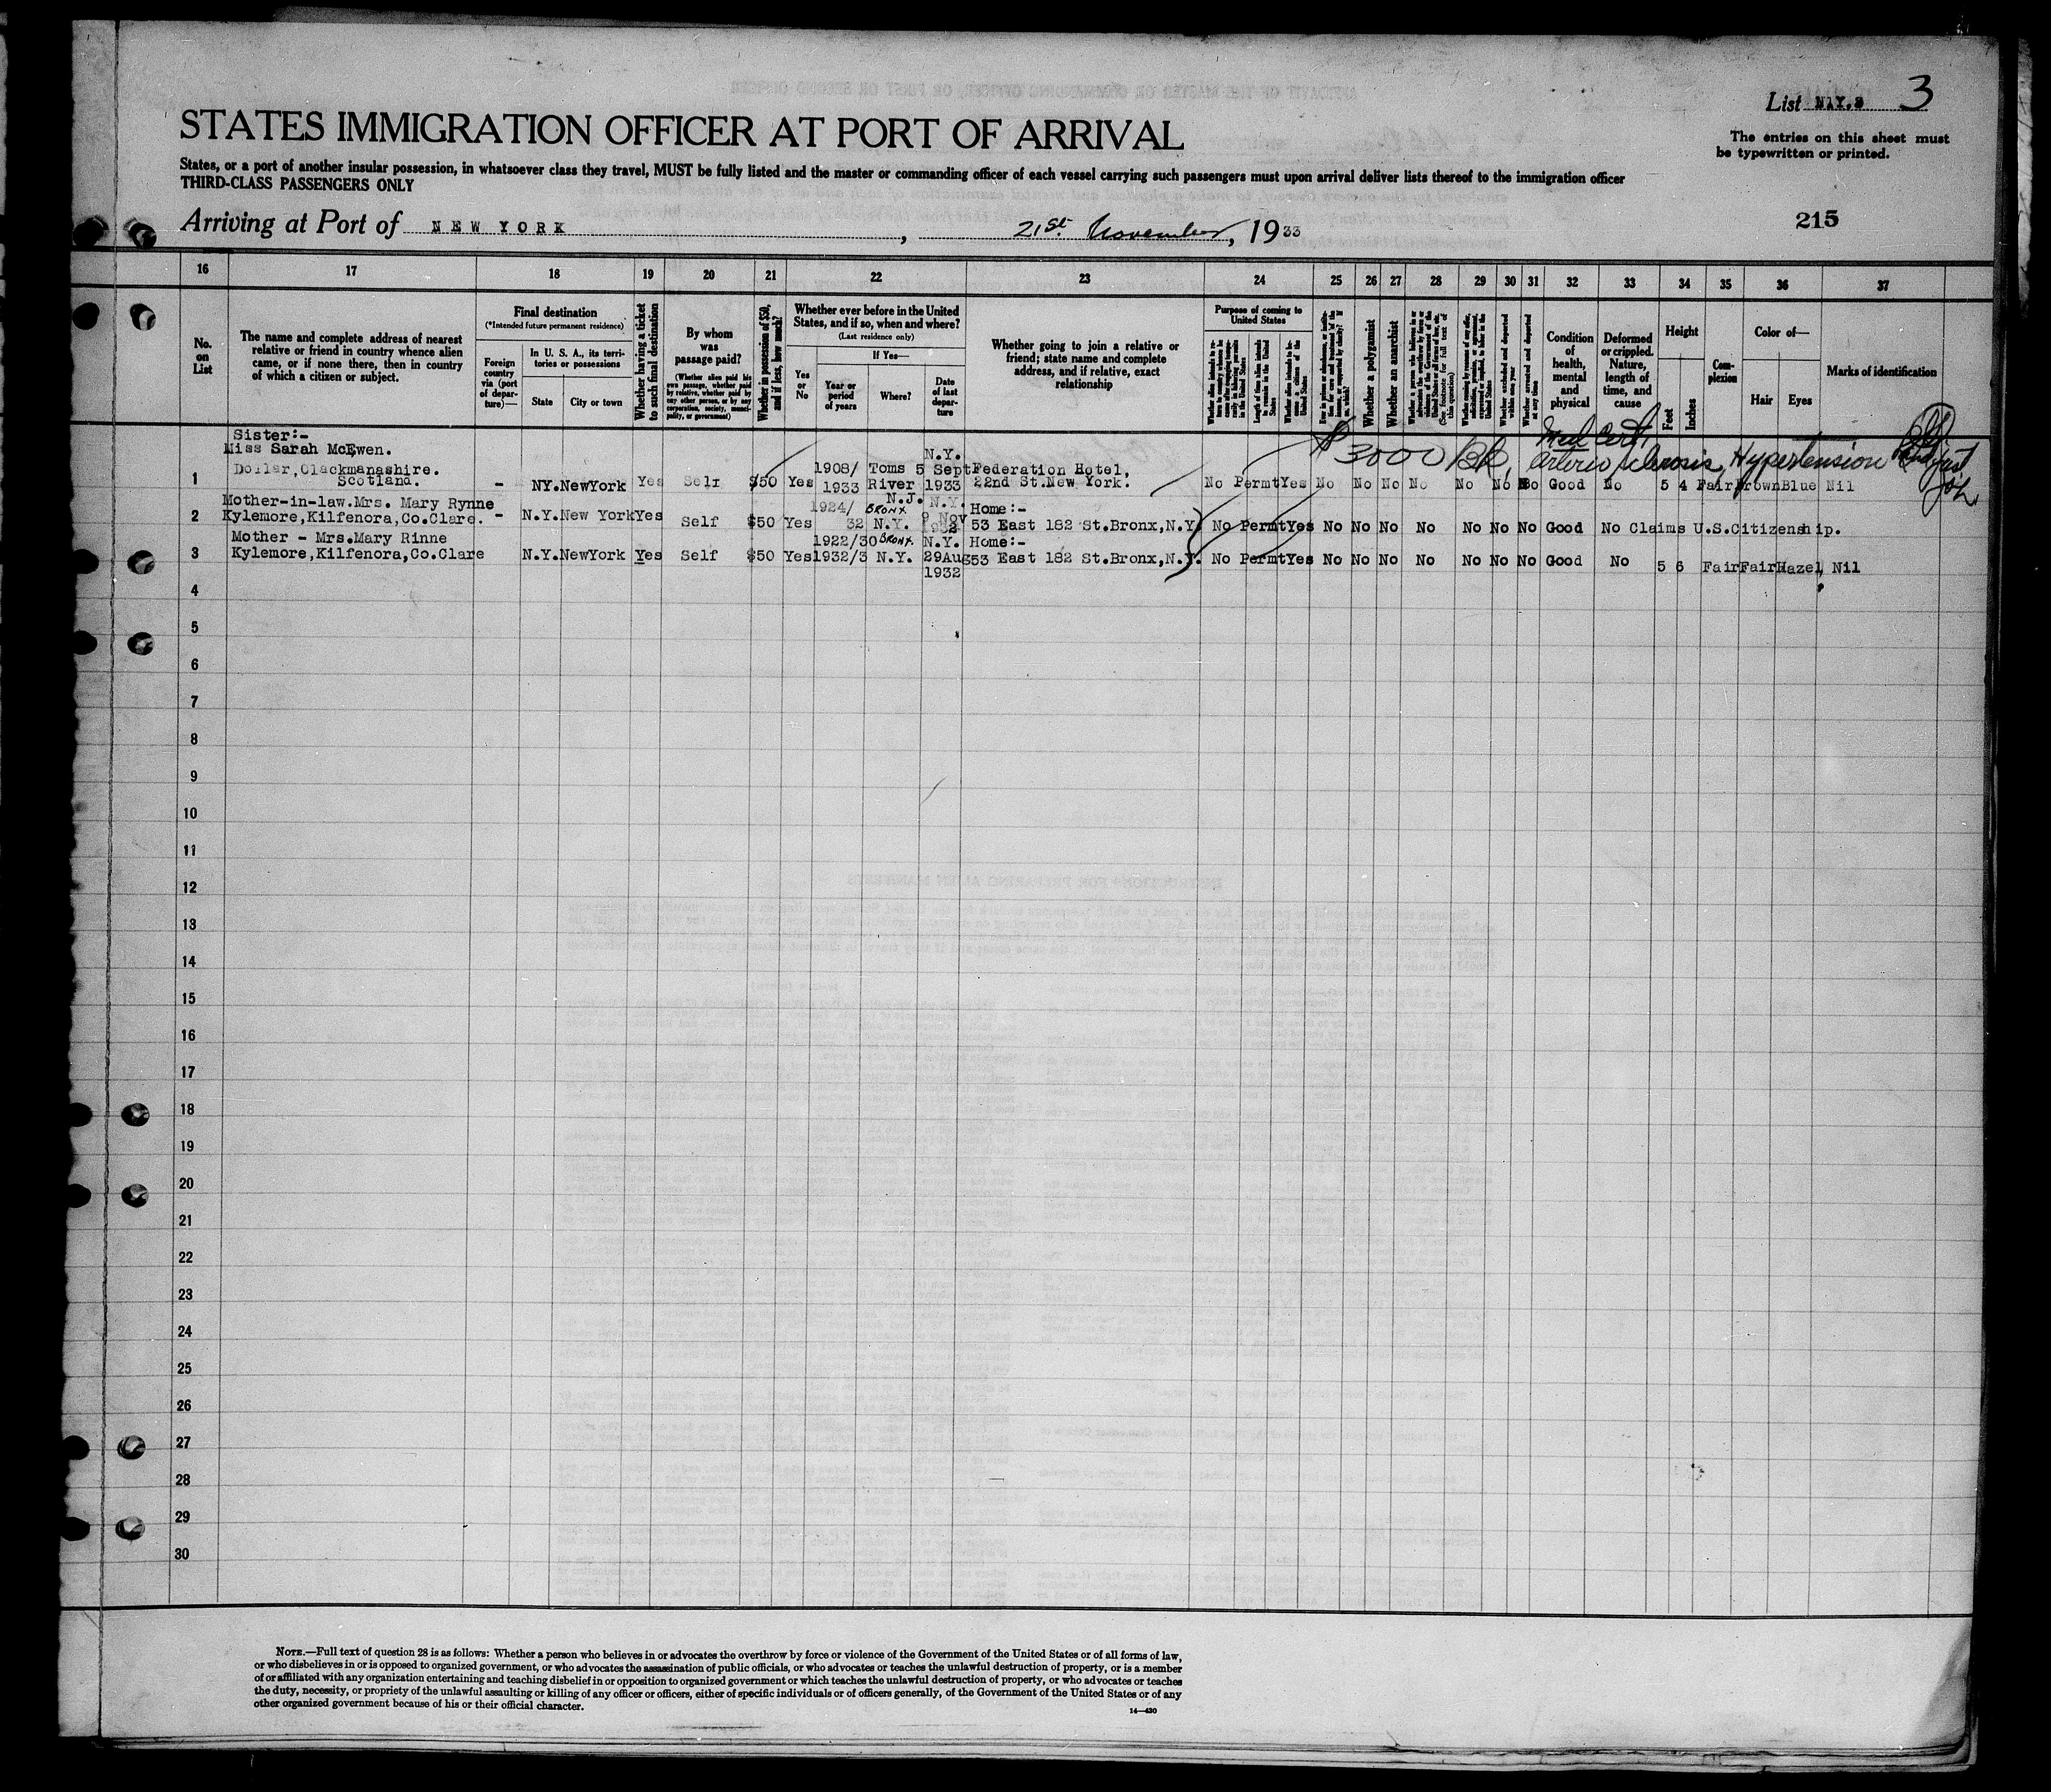 List N.Y.3 3
STATES IMMIGRATION OFFICER AT PORT OF ARRIVAL
The entries on this sheet must
be typewritten or printed.
States, or a port of another insular possession, in whatsoever class they travel, MUST be fully listed and the master or commanding officer of each vessel carrying such passengers must upon arrival deliver lists thereof to the immigration officer
THIRD-CLASS PASSENGERS ONLY
Arriving at Port of NEW YORK, 21st November, 1933
215
16 17 18 19 20 21 22 23 24 25 26 27 28 29 30 31 32 33 34 35 36 37
No. on List
The name and complete address of nearest
relative or friend in country whence alien
came, or if none there, then in country
of which a citizen or subject.
Final destination
(*Intended future permanent residence)
Foreign country via (port of departure)—
In U. S. A., its territories or possessions
State
City or town
Whether having a ticket to such final destination
By whom was passage paid?
(Whether alien paid his own passage, whether paid by relative, whether paid by any other person, or by any corporation, society, municipality, or government)
Whether in possession of $50, and if less, how much?
Whether ever before in the United
States, and if so, when and where?
(Last residence only)
Yes or No
If Yes—
Year or period of years
Where?
Date of last departure
Whether going to join a relative or
friend; state name and complete
address, and if relative, exact
relationship
Purpose of coming to United States
Whether a polygamist
Whether an anarchist
Whether arrested and deported within one year
Whether arrested and deported at any time
Condition of health, mental and physical
Deformed or crippled. Nature, length of time, and cause
Height
Feet
Inches
Complexion
Color of—
Hair
Eyes
Marks of identification
$3000 Bk, Med Cert, arterio sclerosis, Hypertension
Sister:-
Miss Sarah McEwen.
Dollar, Clackmanashire.
Scotland.
1 - NY. NewYork Yes Self $50 Yes 1908/ 1933 Toms River N.J. N.Y. 5 Sept 1933 Federation Hotel, 22nd St.New York. No Permt Yes No No No No No No No Good No 5 4 Fair Brown Blue Nil
Mother-in-law.Mrs. Mary Rynne
Kylemore,Kilfenora,Co.Clare.
2 - N.Y. New York Yes Self $50 Yes 1924/ 32 BRONX N.Y. N.Y. 9 Nov 1932 Home:- 53 East 182 St.Bronx,N.Y. No Permt Yes No No No No No No No Good No Claims U.S.Citizenship.
Mother - Mrs.Mary Rinne
Kylemore,Kilfenora,Co.Clare
3 - N.Y. NewYork Yes Self $50 Yes 1922/30 1932/3 BRONX. N.Y. N.Y. 29Aug 1932 Home:- 53 East 182 St.Bronx,N.Y. No Permt Yes No No No No No No No Good No 5 6 Fair Fair Hazel Nil
4
5
6
7
8
9
10
11
12
13
14
15
16
17
18
19
20
21
22
23
24
25
26
27
28
29
30
NOTE.—Full text of question 28 is as follows: Whether a person who believes in or advocates the overthrow by force or violence of the Government of the United States or of all forms of law,
or who disbelieves in or is opposed to organized government, or who advocates the assassination of public officials, or who advocates or teaches the unlawful destruction of property, or is a member
of or affiliated with any organization entertaining and teaching disbelief in or opposition to organized government or which teaches the unlawful destruction of property, or who advocates or teaches
the duty, necessity, or propriety of the unlawful assaulting or killing of any officer or officers, either of specific individuals or of officers generally, of the Government of the United States or of any
other organized government because of his or their official character.
14—430